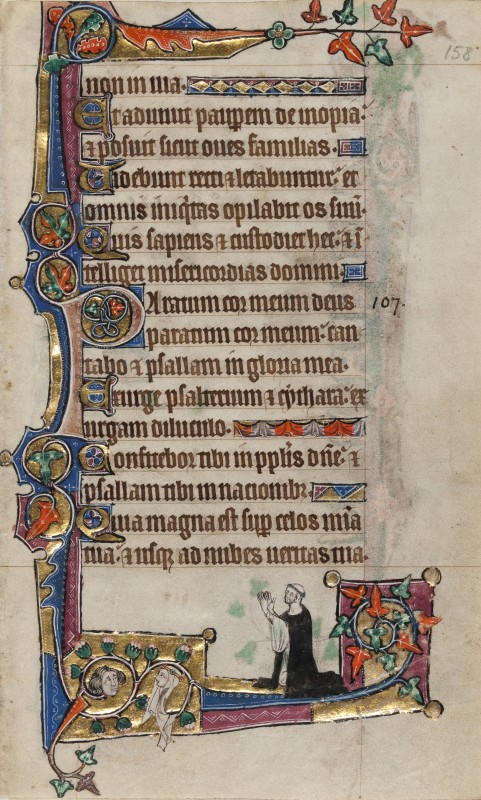 158
non in uia.
Et adiuuit paup̲em de inopia:
& posuit sicut oues familias.
Uidebunt recti & letabuntur: et
omnis iniqͥtas opilabit os suū.
Quis sapiens & custodiet hec: & ī
telliget misericordias domini.
Paratum cor meum deus 107.
paratum cor meum: can
tabo & psallam in gloria mea.
Exurge psalterium & cythara: ex
urgam diluculo.
Confitebor tibi in pp̄lis dn̄e: &
psallam tibi in nacionibꝫ.
Quia magna est suꝑ celos mīa
tua: & usqꝫ ad nubes ueritas tua.